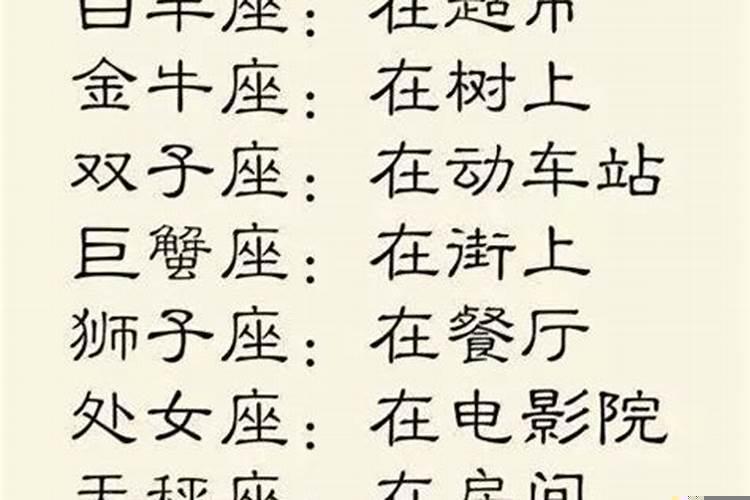 白羊座：在超市
金牛座：在树上
双子座：在动车站
巨蟹座：在街上
狮子座：在餐厅
处女座：在电影院
天秤座：在房间